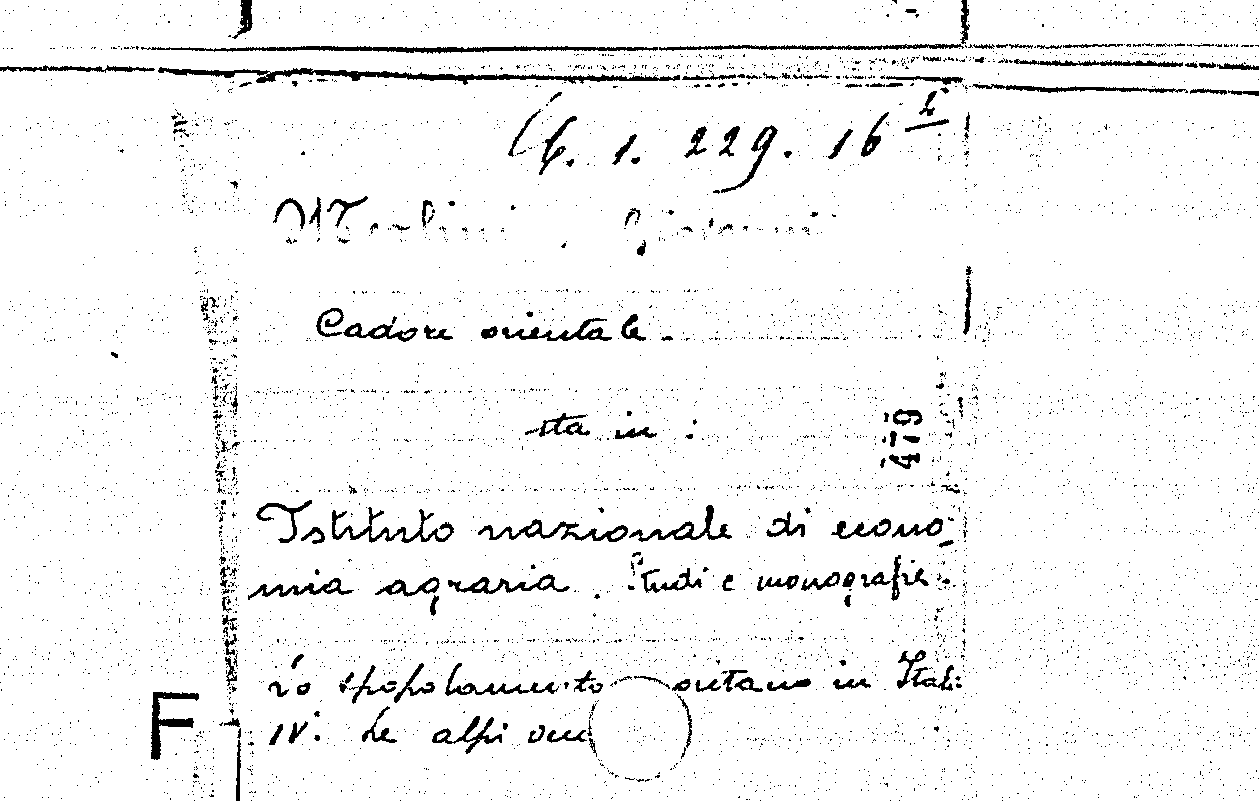 6. 1. 229. 16 2
Merlini, Giovanni
Cadore orientale.
sta in :
479
Istituto nazionale di econo-
mia agraria. Studi e monografie.
Lo spopolamento ontano in Ital:
IV. Le alpi ven
F